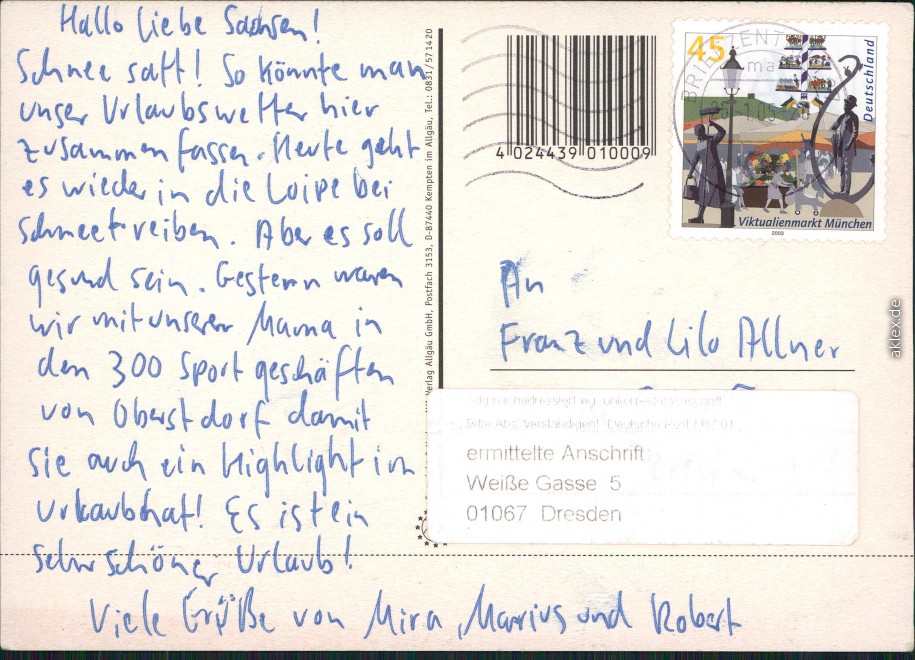 Hallo liebe Sachsen!
Schnee satt! So könnte man
unser Urlaubswetter hier
zusammenfassen. Heute geht
es wieder in die Loipe bei
Schneetreiben. Aber es soll
gesund sein. Gestern waren
wir mit unserer Mama in
den 300 Sportgeschäften
von Oberstdorf damit
sie auch ein Highlight im
Urlaub hat! Es ist ein
sehr schöner Urlaub!
Viele Grüße von Mira, Marius und Robert
erlag Allgäu GmbH, Postfach 3153, D-87440 Kempten im Allgäu, Tel.: 0831/571420
4 024439 010009
BRIEFZENT
45
Deutschland
Viktualienmarkt München
2003
An
Franz und Lilo Allner
Bitte Abs. verständigen! Deutsche Post
ermittelte Anschrift
Weiße Gasse 5
01067 Dresden
aklex.de